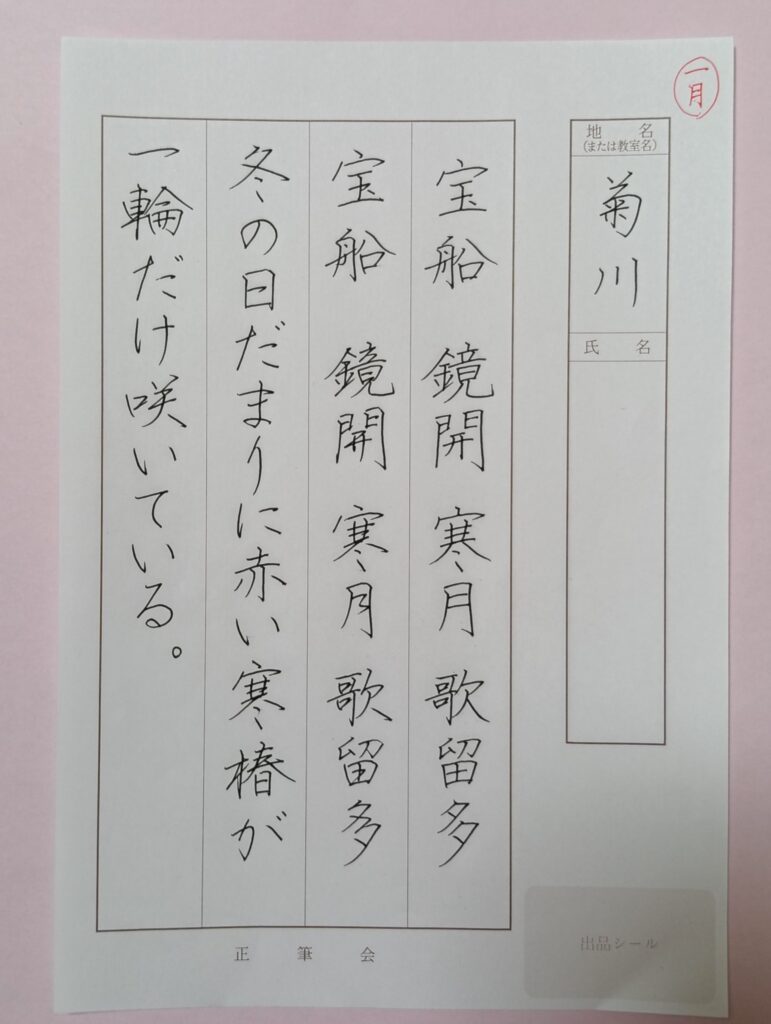 一月
地名
(または教室名)
菊川
氏名
宝船 鏡開 寒月 歌留多
宝船 鏡開 寒月 歌留多
冬の日だまりに赤い寒椿が
一輪だけ咲いている。
正筆会
出品シール